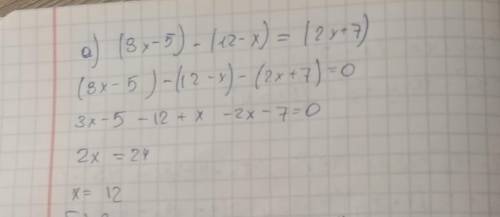 а) (3x-5) - (12-x) = (2x+7)
(3x-5) - (12-x) - (2x+7) = 0
3x-5 -12 + x -2x -7 = 0
2x = 24
x = 12